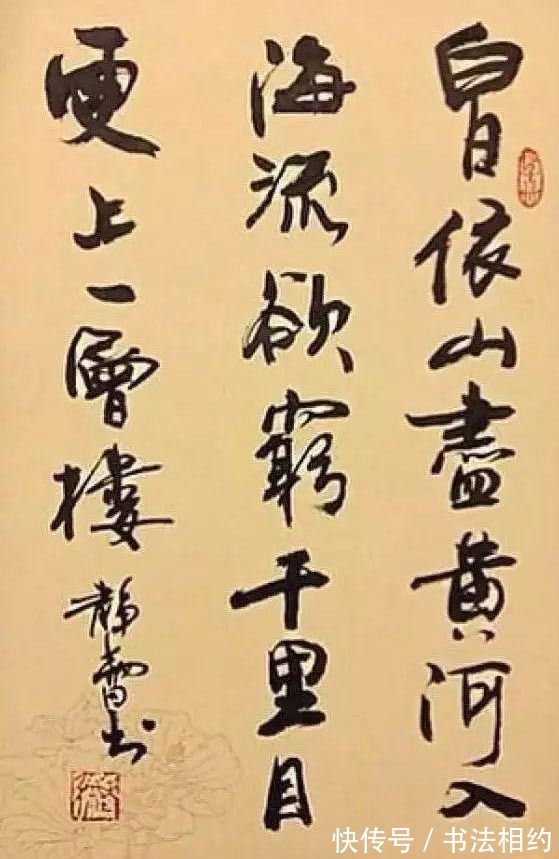 白日依山盡黃河入
海流欲窮千里目
更上一層樓
靜雲書
快传号 / 书法相约